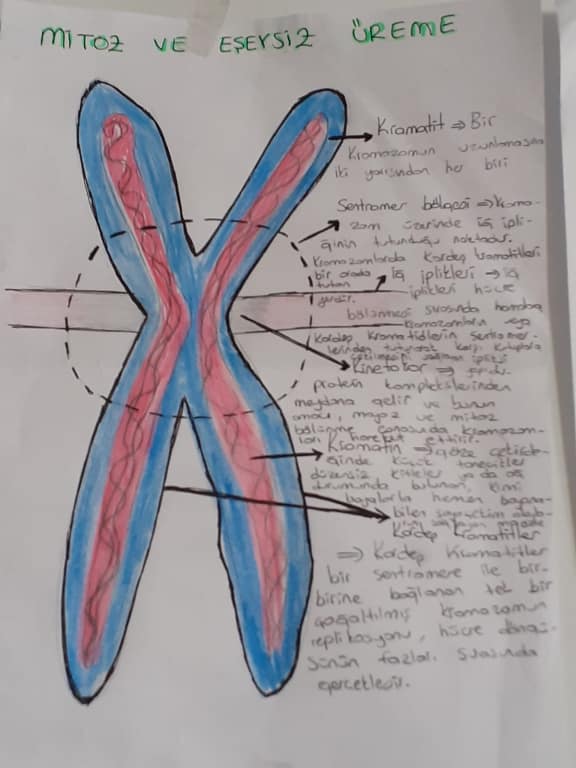 MİTOZ VE EŞEYSİZ ÜREME
Kramatit ⇒ Bir
Kramozomun uzunlamasına
iki yarısından her biri
Sentromer bölgesi ⇒ Kromo-
zom üzerinde iğ ipli-
ğinin tutunduğu noktadır.
Kromozomlarda kardeş kramatitleri
bir arada
tutan
yerdir.
İğ iplikleri → iğ
iplikleri hücre
bölünmesi sırasında homolog
kromozomların veya
Kardeş kromatidlerin sentromer-
lerinden tutunarak karşı kutuplara
Kinetokor ⇒
protein komplekslerinden
meydana gelir ve bunun
amacı, mayoz ve mitoz
bölünme sırasında kromozom-
ları hareket ettirir.
Kromatin ⇒ göze
ğinde küçük tanecikler
düzensiz, kitleler ya da ağ
durumunda bulunan, kimi
boyalarla hemen boyana-
bilen
Kardeş Kromatitler
⇒ Kardeş Kromatitler
bir sentromere ile bir-
birine bağlanan tek bir
çoğaltılmış kromozomun
replikasyonu, hücre döngü-
sünün fazları sırasında
gerçekleşir.